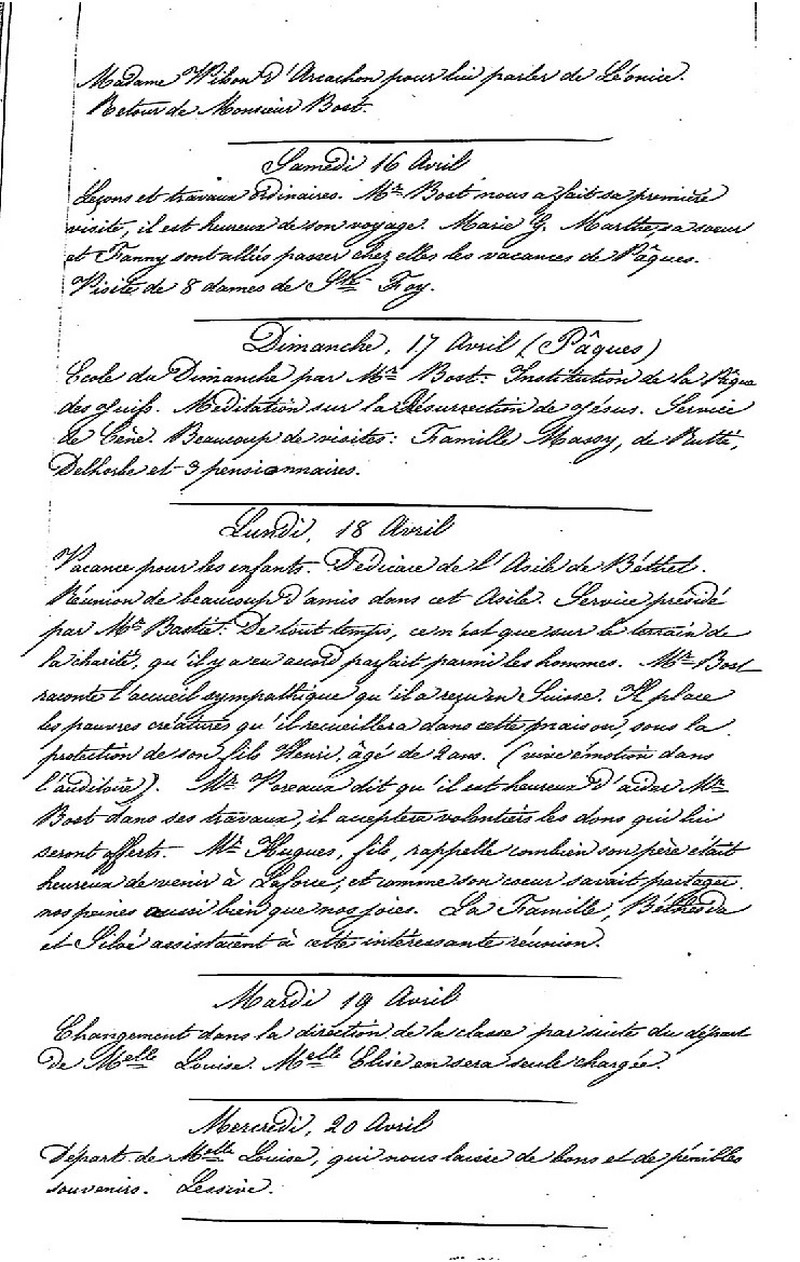 Madame Wilson d'Arcachon pour lui parler de Léonice.
Retour de Monsieur Bost.
Samedi 16 Avril
Leçons et travaux ordinaires. Mr Bost nous a fait sa première
visite, il est heureux de son voyage. Marie G. Marthe, sa soeur
et Fanny sont allées passer chez elles les vacances de Pâques.
Visite de 8 dames de Ste Foy.
Dimanche, 17 Avril (Pâques)
Ecole du Dimanche par Mr Bost: Institution de la Pâque
des Juifs. Méditation sur la Résurrection de Jésus. Service
de Cène. Beaucoup de visites: Famille Massy, de Rutté,
Delhorbe et 3 pensionnaires.
Lundi, 18 Avril
Vacance pour les enfants. Dédicace de l'Asile de Béthel.
Réunion de beaucoup d'amis dans cet Asile. Service présidé
par Mr Bastie: De tout temps, ce n'est que sur le terrain de
la charité, qu'il y a eu accord parfait parmi les hommes. Mr Bost
raconte l'accueil sympathique qu'il a reçu en Suisse. Il place
les pauvres créatures qu'il recueillera dans cette maison, sous la
protection de son fils Henri, âgé de 2 ans. (vive émotion dans
l'auditoire). Mr dit qu'il est heureux d'aider Mr
Bost dans ses travaux, il acceptera volontiers les dons qui lui
seront offerts. Mr Hugues, fils, rappelle combien son père était
heureux de venir à Laforce; et comme son coeur savait partager
nos peines aussi bien que nos joies. La Famille, Béthesda
et Siloé assistaient à cette intéressante réunion.
Mardi 19 Avril
Changement dans la direction de la classe par suite du départ
de Melle Louise. Melle Elise en sera seule chargée.
Mercredi, 20 Avril
Départ de Melle Louise, qui nous laisse de bons et de pénibles
souvenirs. Lessive.